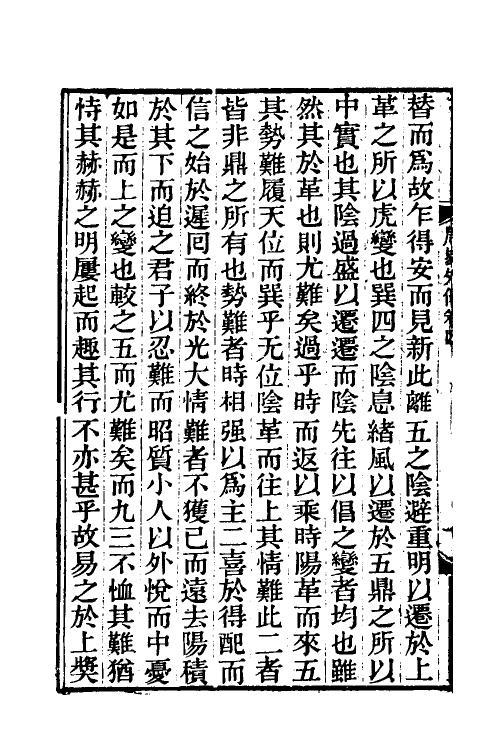 替而爲故乍得安而見新此離五之陰避重明以遷於上
革之所以虎變也巽四之陰息緒風以遷於五鼎之所以
中實也其陰過盛以遷遷而陰先往以倡之變者均也雖
然其於革也則尤難矣過乎時而返以乘時陽革而來五
其勢難履天位而巽乎无位陰革而往上其情難此二者
皆非鼎之所有也勢難者時相强以爲主二喜於得配而
信之始於遲囘而終於光大情難者不獲已而遠去陽積
於其下而追之君子以忍難而昭質小人以外悅而中憂
如是而上之變也較之五而尤難矣而九三不恤其難猶
恃其赫赫之明屢起而趣其行不亦甚乎故易之於上獎